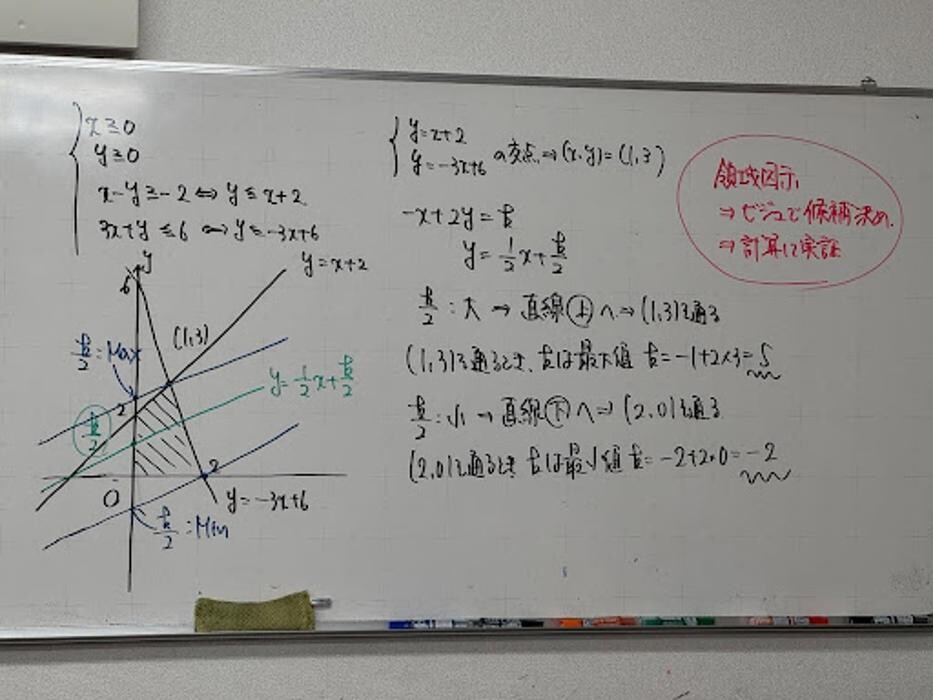 x ≧ 0
y ≧ 0
x-y ≧ -2 ⇔ y ≦ x+2
3x+y ≦ 6 ⇔ y ≦ -3x+6
y
6
y=x+2
(1,3)
k/2:Max
y=1/2x+k/2
2
k/2
2
O
y=-3x+6
k/2:Min
y=x+2
y=-3x+6 の交点⇒(x,y)=(1,3)
-x+2y=k
y=1/2x+k/2
k/2:大→直線上へ⇒(1,3)を通る
(1,3)を通るとき、kは最大値 k=-1+2×3=5
k/2:小→直線下へ⇒(2,0)を通る
(2,0)を通るとき kは最小値 k=-2+2・0=-2
領域図示
⇒ビジュで候補決め
⇒計算にて実証